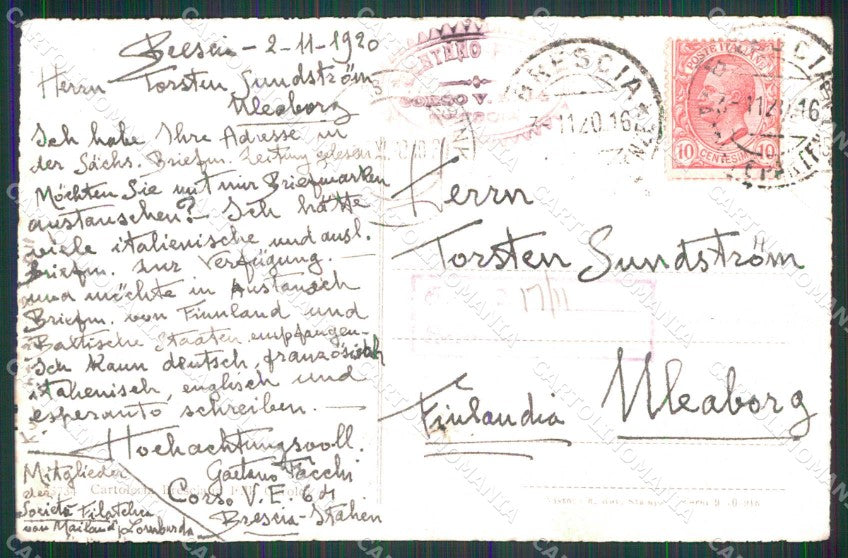 Brescia - 2-11-1920
Herrn Torsten Sundström
Uleaborg
Ich habe Ihre Adresse in
der Sächs. Briefm. Zeitung gelesen
Möchten Sie mit mir Briefmarken
austauschen? Ich hätte
viele italienische und ausl.
Briefm. zur Verfügung.
und möchte in Austausch
Briefm. von Finnland und
Baltische Staaten empfangen-
Ich kann deutsch, französisch
italienisch, englisch und
esperanto schreiben.
Hochachtungsvoll.
Gaetano Facchi
Corso V. E. 61
Brescia-Italien
Mitglieder
der
Società Filatelica
von Mailand, Lombarda
CORSO V.
BRESCIA
3-11 20.16
POSTE ITALIANE
10 CENTESIMI 10
BRESCIA
3-11 20.16
Herrn
Torsten Sundström
17/11
Uleaborg
Finlandia
CARTOLINOMANIA